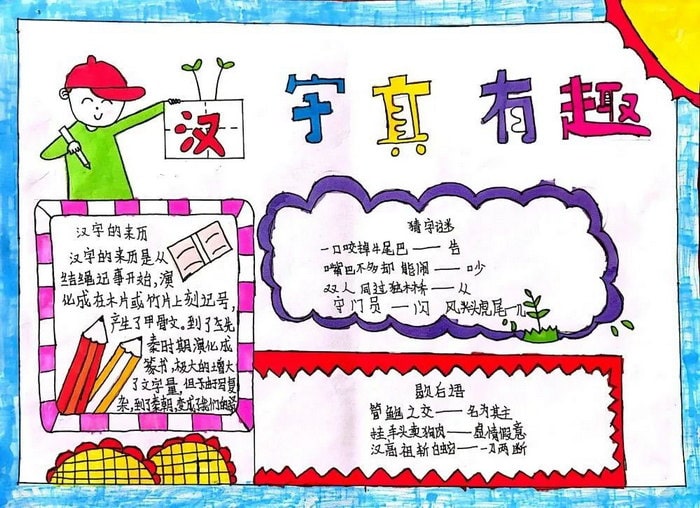 汉字真有趣
汉字的来历
汉字的来历是从
结绳记事开始,演
化成在木片或竹片上刻记号,
产生了甲骨文。到了
秦时期演化成
篆书,极大的增大
了文字量,但于由写复
杂,到了秦朝,变成了我们的
猜字谜
一口咬掉牛尾巴——告
嘴巴不多却能闹——吵
双人同过独木桥——从
守门员——闪 风头虎尾—几
歇后语
管鲍之交——各为其主
挂羊头卖狗肉——虚情假意
汉高祖斩白蛇——一刀两断